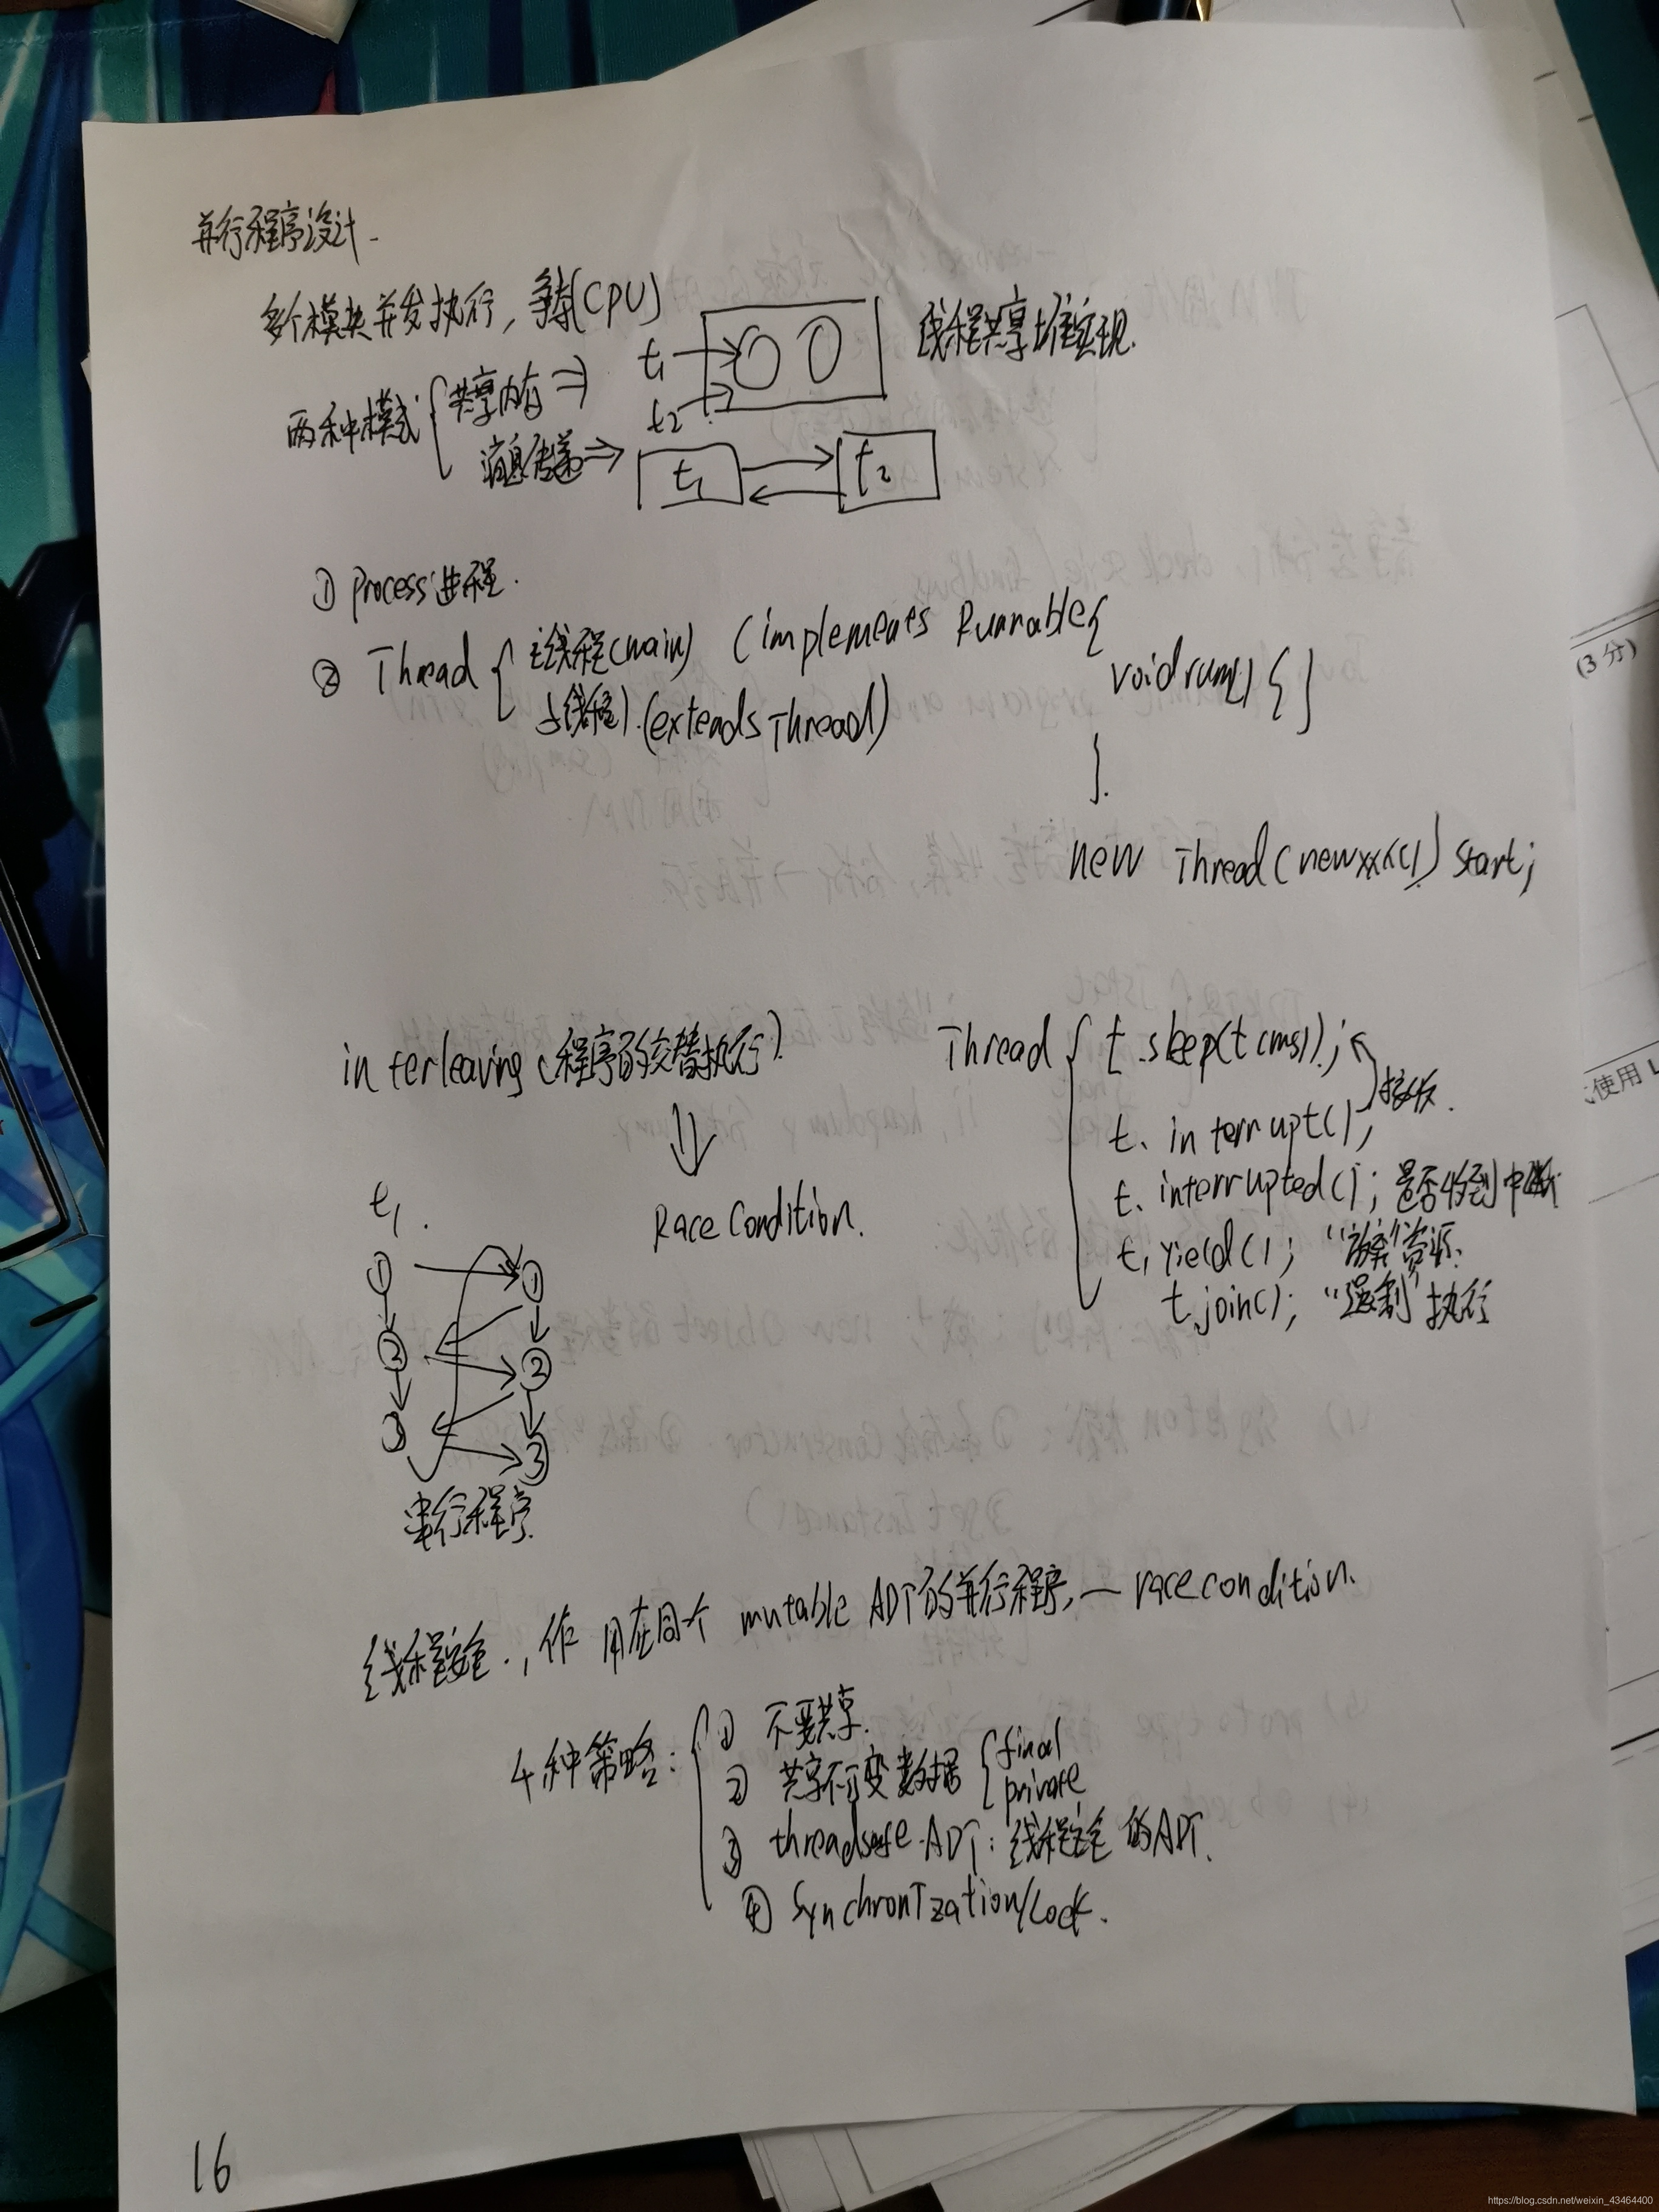 并行程序设计.
多个模块并发执行, 争夺(CPU)
两种模式
共享内存 ⇒
t1
t2
线程共享堆实现.
消息传递 ⇒
t1
t2
① process进程.
② Thread { 主线程(main) (implements Runnable{
void run() { }
}.
子线程). (exteads Thread)
new Thread(new xxx()) start;
interleaving (程序的交替执行)
⇓
Race Condition.
Thread { t.sleep(t(ms));
t. interrupt(); 接收.
t. interrupted(); 是否收到中断
t. yield(); "放弃"资源.
t.join(); "强制"执行
t1.
① ①
② ②
3 ③
串行程序.
线程安全., 作用在同个 mutable ADT的并行程序, — race condition.
4种策略:
① 不要共享.
② 共享不可变数据 { final
private
③ threadsafe ADT: 线程安全的ADT.
④ SynchronIzation/Lock.
16
(3 分)
使用 L
https://blog.csdn.net/weixin_43464400